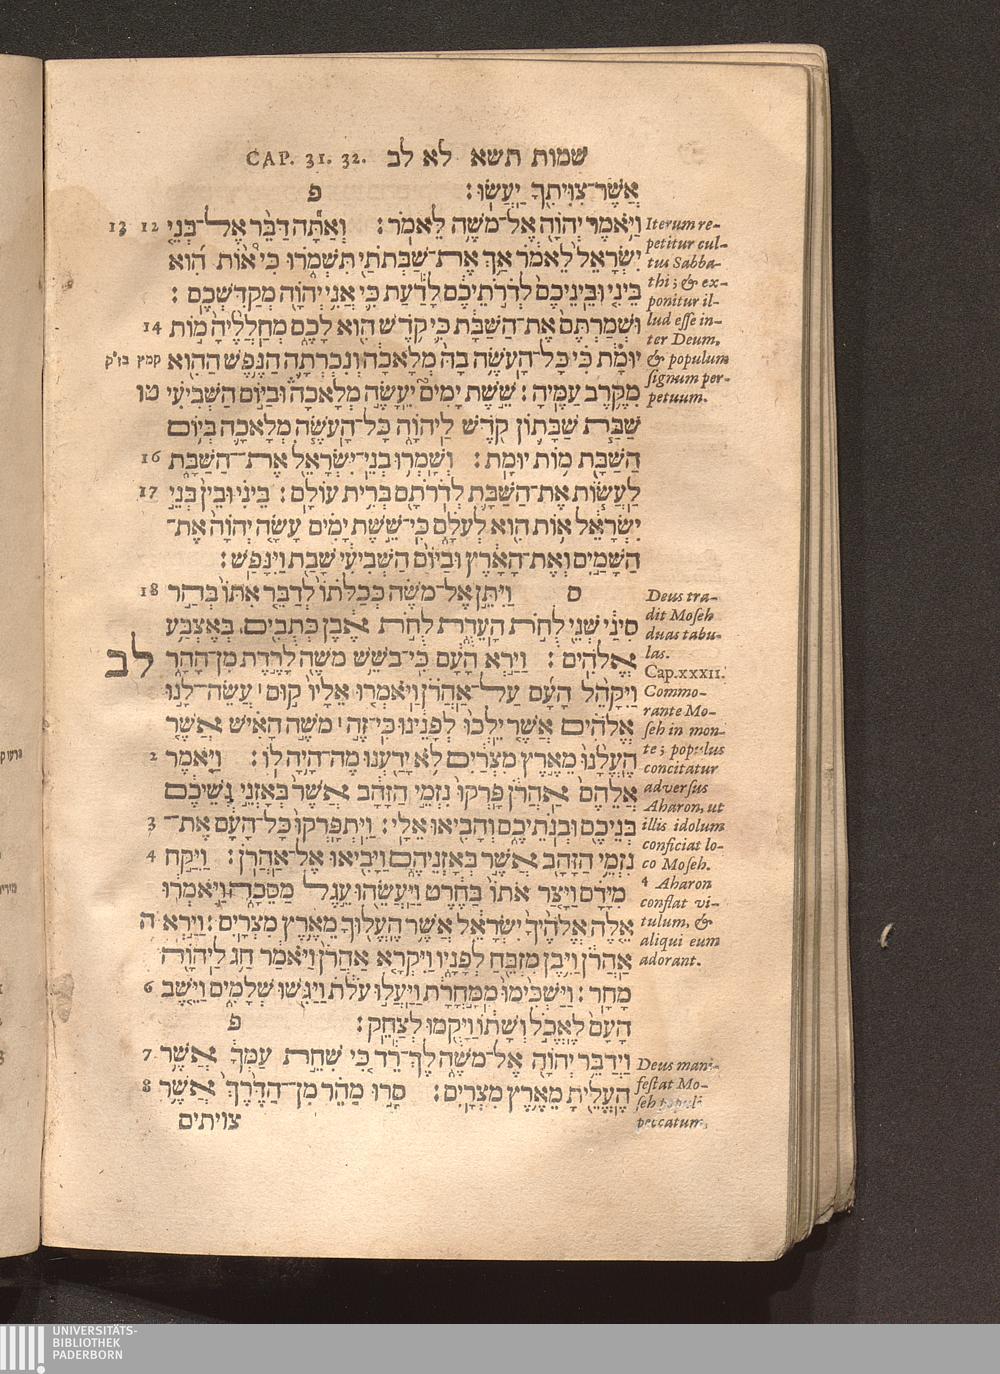 CAP. 31. 32. שמות תשא לא לב
אֲשֶׁר־צִוִּיתִךָ יַעֲשׂוּ׃ פ
12 13 וַיֹּאמֶר יְהוָה אֶל־מֹשֶׁה לֵּאמֹר׃ וְאַתָּה דַּבֵּר אֶל־בְּנֵי
יִשְׂרָאֵל לֵאמֹר אַךְ אֶת־שַׁבְּתֹתַי תִּשְׁמֹרוּ כִּי אוֹת הִוא
בֵּינִי וּבֵינֵיכֶם לְדֹרֹתֵיכֶם לָדַעַת כִּי אֲנִי יְהוָה מְקַדִּשְׁכֶם׃
14 וּשְׁמַרְתֶּם אֶת־הַשַּׁבָּת כִּי קֹדֶשׁ הִוא לָכֶם מְחַלְלֶיהָ מוֹת
יוּמָת כִּי כָּל־הָעֹשֶׂה בָהּ מְלָאכָה וְנִכְרְתָה הַנֶּפֶשׁ הַהִוא
קמץ בז״ק
טו מִקֶּרֶב עַמֶּיהָ׃ שֵׁשֶׁת יָמִים יֵעָשֶׂה מְלָאכָה וּבַיּוֹם הַשְּׁבִיעִי
שַׁבַּת שַׁבָּתוֹן קֹדֶשׁ לַיהוָה כָּל־הָעֹשֶׂה מְלָאכָה בְּיוֹם
16 הַשַּׁבָּת מוֹת יוּמָת׃ וְשָׁמְרוּ בְנֵי־יִשְׂרָאֵל אֶת־הַשַּׁבָּת
17 לַעֲשׂוֹת אֶת־הַשַּׁבָּת לְדֹרֹתָם בְּרִית עוֹלָם׃ בֵּינִי וּבֵין בְּנֵי
יִשְׂרָאֵל אוֹת הִוא לְעֹלָם כִּי־שֵׁשֶׁת יָמִים עָשָׂה יְהוָה אֶת־
הַשָּׁמַיִם וְאֶת־הָאָרֶץ וּבַיּוֹם הַשְּׁבִיעִי שָׁבַת וַיִּנָּפַשׁ׃
18 ס וַיִּתֵּן אֶל־מֹשֶׁה כְּכַלֹּתוֹ לְדַבֵּר אִתּוֹ בְּהַר
סִינַי שְׁנֵי לֻחֹת הָעֵדֻת לֻחֹת אֶבֶן כְּתֻבִים בְּאֶצְבַּע
לב אֱלֹהִים׃ וַיַּרְא הָעָם כִּי־בֹשֵׁשׁ מֹשֶׁה לָרֶדֶת מִן־הָהָר
וַיִּקָּהֵל הָעָם עַל־אַהֲרֹן וַיֹּאמְרוּ אֵלָיו קוּם ׀ עֲשֵׂה־לָנוּ
אֱלֹהִים אֲשֶׁר יֵלְכוּ לְפָנֵינוּ כִּי־זֶה ׀ מֹשֶׁה הָאִישׁ אֲשֶׁר
2 הֶעֱלָנוּ מֵאֶרֶץ מִצְרַיִם לֹא יָדַעְנוּ מֶה־הָיָה לוֹ׃ וַיֹּאמֶר
אֲלֵהֶם אַהֲרֹן פָּרְקוּ נִזְמֵי הַזָּהָב אֲשֶׁר בְּאָזְנֵי נְשֵׁיכֶם
3 בְּנֵיכֶם וּבְנֹתֵיכֶם וְהָבִיאוּ אֵלָי׃ וַיִּתְפָּרְקוּ כָּל־הָעָם אֶת־
4 נִזְמֵי הַזָּהָב אֲשֶׁר בְּאָזְנֵיהֶם וַיָּבִיאוּ אֶל־אַהֲרֹן׃ וַיִּקַּח
מִיָּדָם וַיָּצַר אֹתוֹ בַּחֶרֶט וַיַּעֲשֵׂהוּ עֵגֶל מַסֵּכָה וַיֹּאמְרוּ
ה אֵלֶּה אֱלֹהֶיךָ יִשְׂרָאֵל אֲשֶׁר הֶעֱלוּךָ מֵאֶרֶץ מִצְרָיִם׃ וַיַּרְא
אַהֲרֹן וַיִּבֶן מִזְבֵּחַ לְפָנָיו וַיִּקְרָא אַהֲרֹן וַיֹּאמַר חַג לַיהוָה
6 מָחָר׃ וַיַּשְׁכִּימוּ מִמָּחֳרָת וַיַּעֲלוּ עֹלֹת וַיַּגִּשׁוּ שְׁלָמִים וַיֵּשֶׁב
הָעָם לֶאֱכֹל וְשָׁתוֹ וַיָּקֻמוּ לְצַחֵק׃ פ
7 וַיְדַבֵּר יְהוָה אֶל־מֹשֶׁה לֶךְ־רֵד כִּי שִׁחֵת עַמְּךָ אֲשֶׁר
8 הֶעֱלֵיתָ מֵאֶרֶץ מִצְרָיִם׃ סָרוּ מַהֵר מִן־הַדֶּרֶךְ אֲשֶׁר
צויתים
Iterum re-
petitur cul-
tus Sabba-
thi; & ex-
ponitur il-
lud esse in-
ter Deum,
& populum
signum per-
petuum.
Deus tra-
dit Moseh
duas tabu-
las.
Cap. XXXII.
Commo-
rante Mo-
seh in mon-
te; populus
concitatur
adversus
Aharon, ut
illis idolum
conficiat lo-
co Moseh.
4 Aharon
conflat vi-
tulum, &
aliqui eum
adorant.
Deus mani-
festat Mo-
seh
peccatum.
UNIVERSITÄTS-
BIBLIOTHEK
PADERBORN